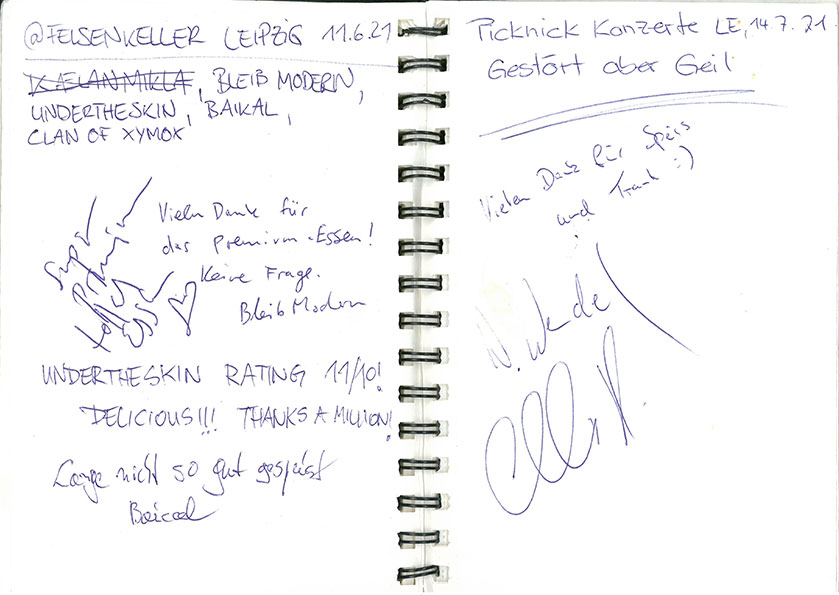 @FELSENKELLER LEIPZIG 11.6.21
KÆLAN MIKLA, BLEIB MODERN,
UNDERTHESKIN, BAIKAL,
CLAN OF XYMOX
Super
Vielen Dank für
das Premium-Essen!
Keine Frage.
Bleib Modern
UNDERTHESKIN RATING 11/10!
DELICIOUS!!! THANKS A MILLION!
Lange nicht so gut gespeist
Baical
Picknick Konzerte LE, 14.7.21
Gestört aber Geil
Vielen Dank für Speis
und Trank :)
N. Wendel